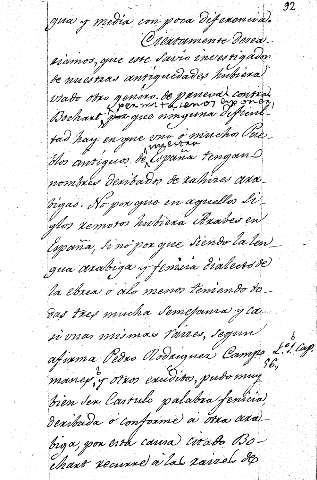 92
gua y media con poca diferencia.
Ciertamente desea-
riamos, que este savio investigador
de nuestras antiguedades hubiera
usado otro genero de pruevas contra
Bochart, permitasenos exponer
porque ninguna dificul-
tad hay en que uno ó muchos Pue-
blos antiguos de nuestra España tengan
nombres deribados de rahizes ara-
bigas. No por que en aquellos si-
glos remotos hubiera Arabes en
España, si nó por que siendo la len-
gua arabiga y fenicia dialecto de
la ebrea ó alo menos teniendo to-
das tres mucha semejanza y ca-
si unas mismas raizes, segun
afirma Pedro Rodriguez Campo-
manes, y otros erudito, pudo muy
L. 1. Cap.
bien ser Castulo palabra fenicia
deribada ó conforme á otra ara-
biga, por esta causa citado Bo-
chart recurre á las raizes de